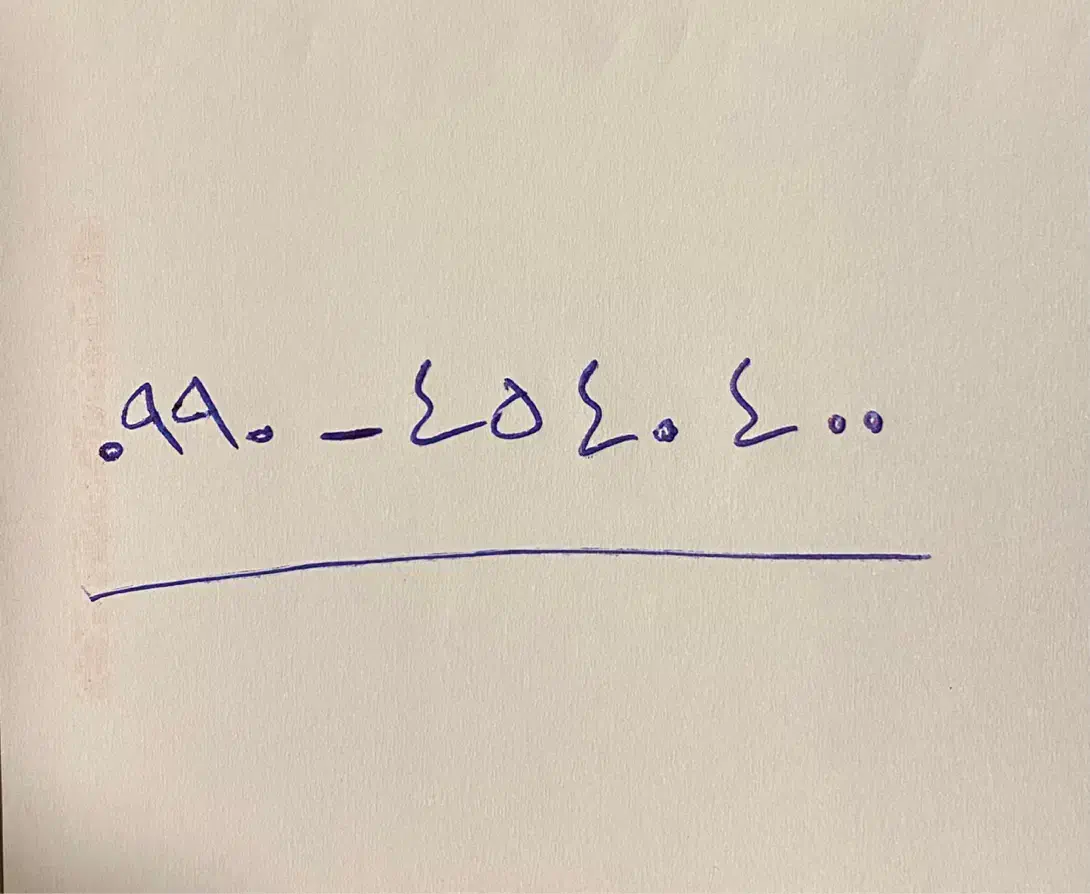 ٠٩٩٠ - ٤٥٤٠ ٤٠٠